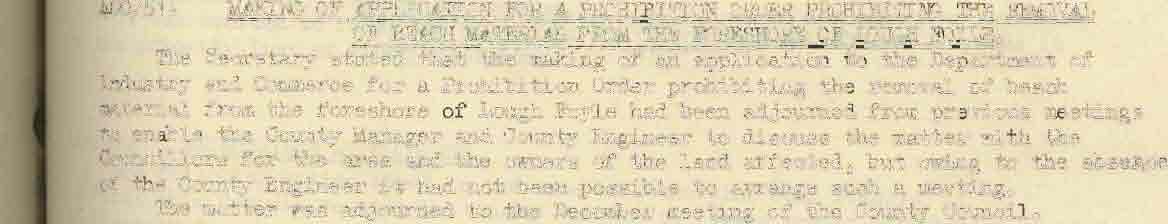 MAKING OF APPLICATION FOR A PROHIBITION ORDER PROHIBITING THE REMOVAL
OF BEACH MATERIAL FROM THE FORESHORE OF LOUGH FOYLE.
The Secretary stated that the making of an application to the Department of
Industry and Commerce for a Prohibition Order prohibiting the removal of beach
material from the foreshore of Lough Foyle had been adjourned from previous meetings
to enable the County Manager and County Engineer to discuss the matter with the
Councillors for the area and the owners of the land affected, but owing to the absence
of the County Engineer it had not been possible to arrange such a meeting.
The matter was adjourned to the December meeting of the County Council.